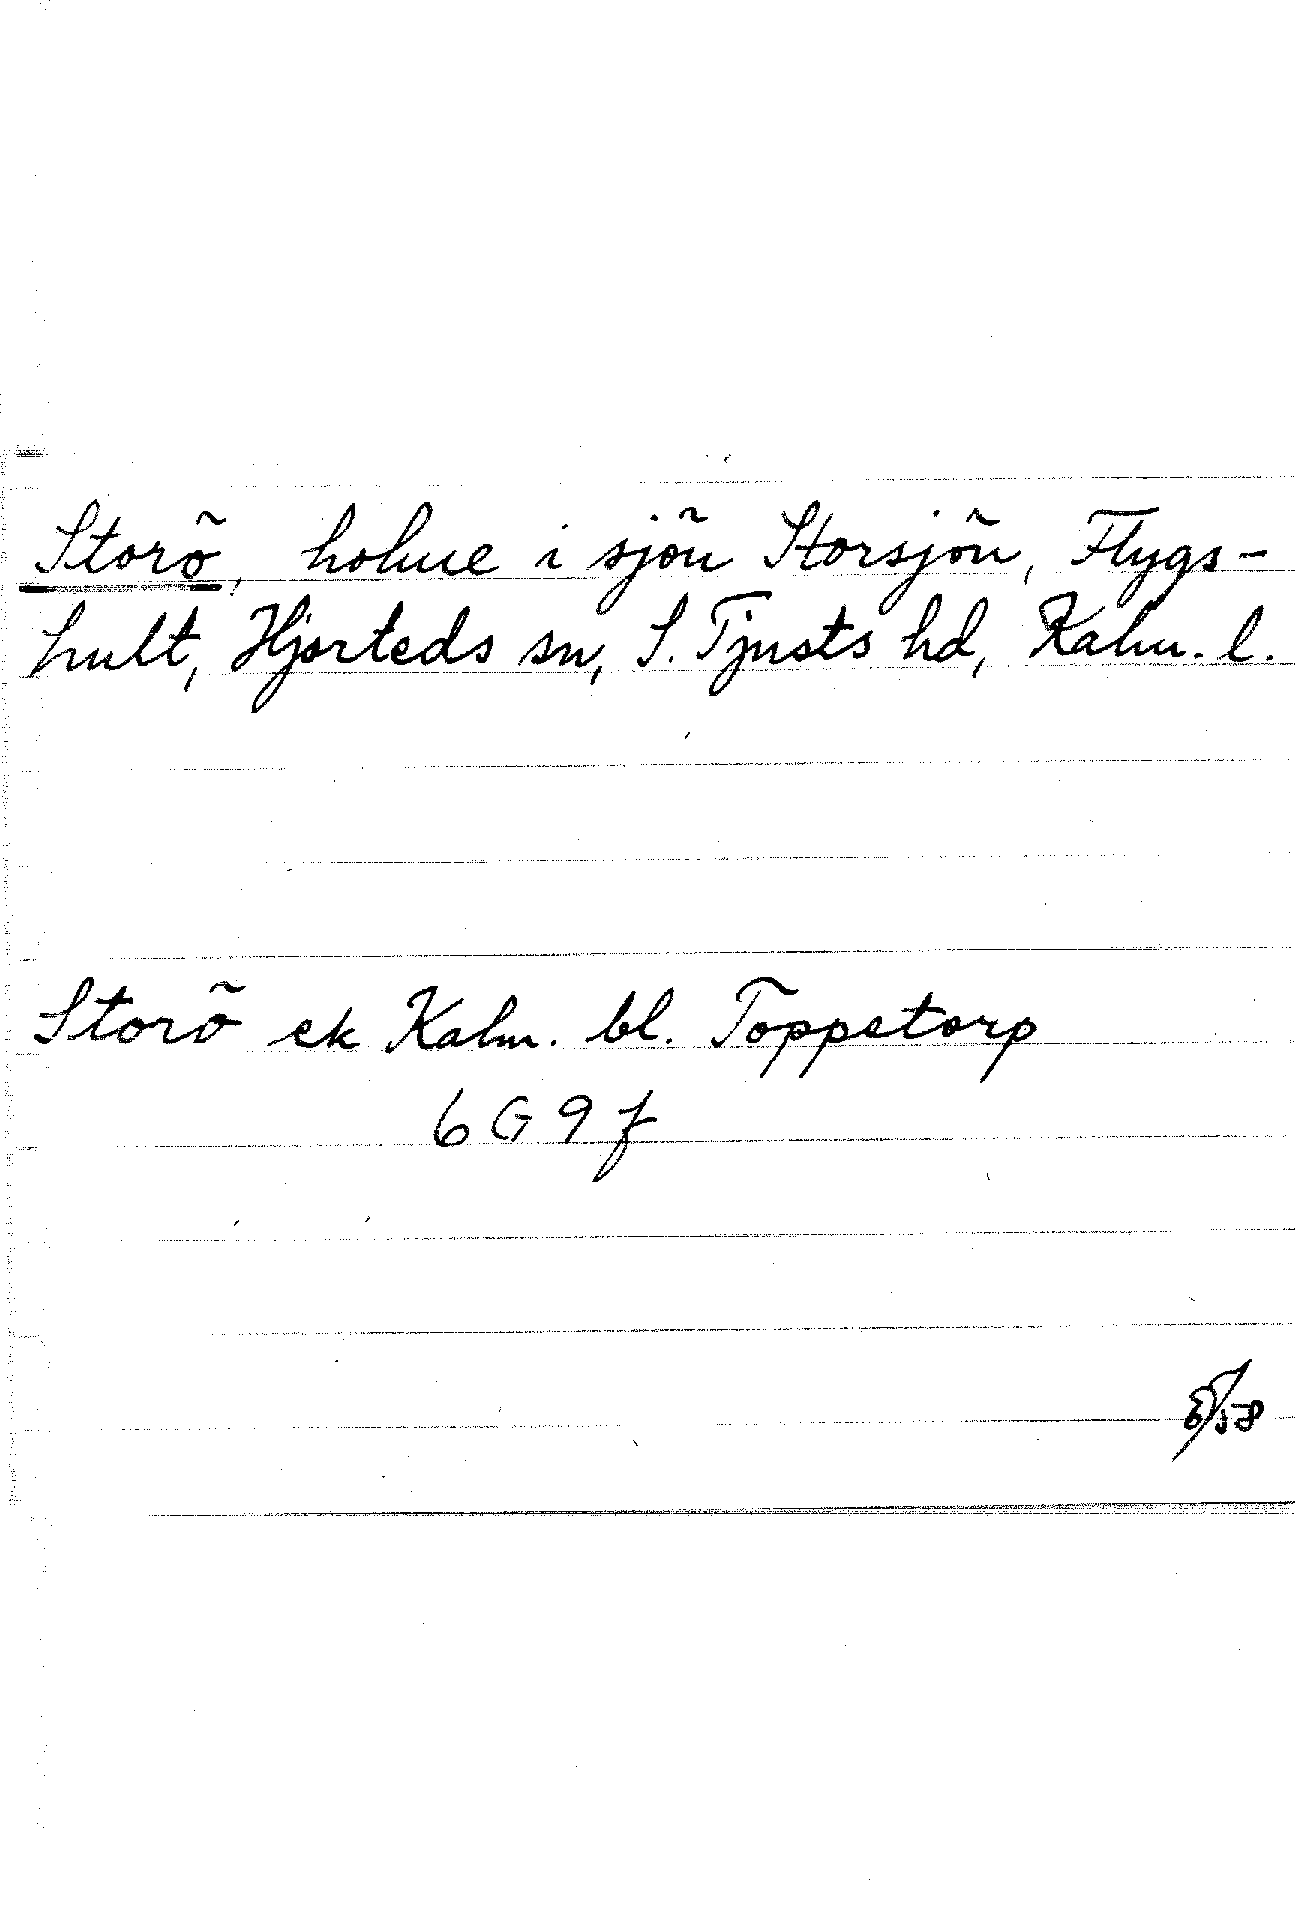 Storö, holme i sjön Storsjön, Flygs-
hult, Hjorteds sn, S. Tjusts hd, Kalm. l.
Storö ek Kalm. bl. Toppetorp
6G9f